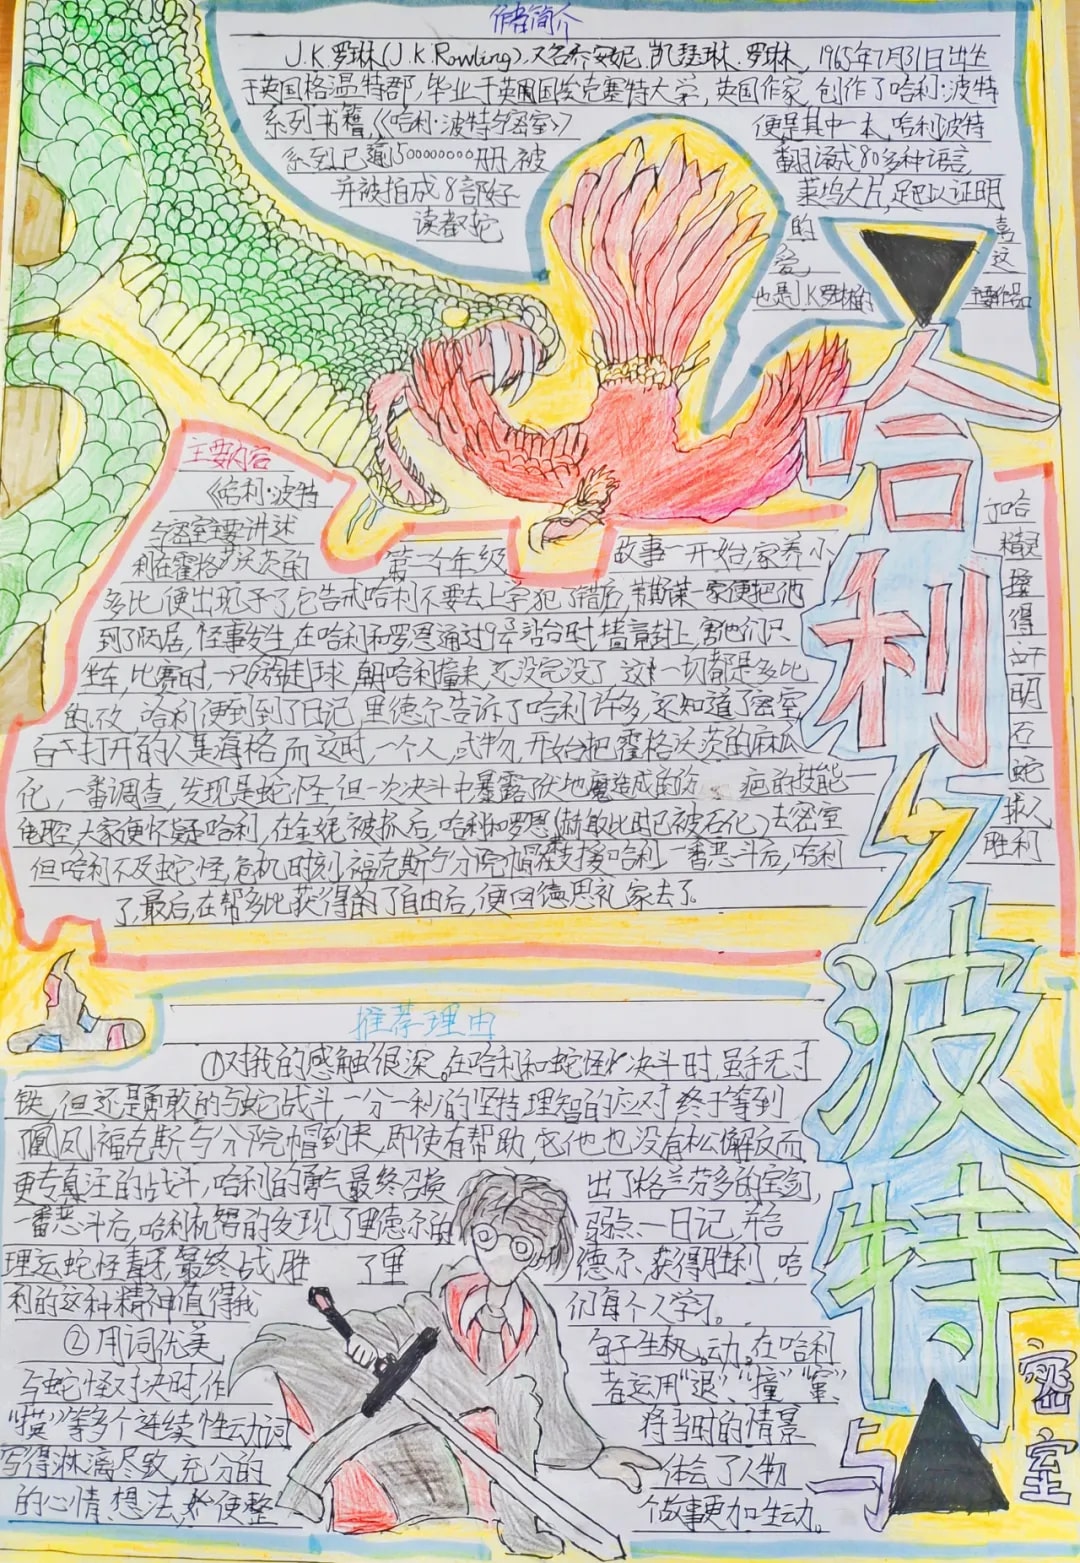 作者简介
J.K.罗琳(J.K.Rowling),又名乔安妮.凯瑟琳.罗琳,1965年7月31日出生
于英国格温特郡,毕业于英国国埃克塞特大学,英国作家,创作了哈利·波特
系列书籍,《哈利·波特与密室》 便是其中一本,哈利波特
系列已逾500000000册,被 翻译成80多种语言,
并被拍成8部好 莱坞大片,足以证明
读者都 的 喜
爱 这
也是J.K罗琳的 主要作品
主要内容
《哈利·波特
与密室主要讲述 了哈
利在霍格沃茨的 第二个年级 故事一开始,家养小 精灵
多比,便出现,予了它告戒哈利不要去上学犯了错后,
到了陋居,怪事发生,在哈利和罗恩通过9¾站台时,墙 封上,害他们只 得
坐车,比赛时,一只 球,朝哈利撞来,还没完没了,这一切都是多比
的 ,哈利便 到了日记,里德尔告诉了哈利许多,还知道了密室 明
打开的人是海格,而这时,一个人 开始把霍格沃茨的麻瓜 石
化,一番调查,发现是蛇怪,但一次决斗中暴露伏地魔造成的伤 疤的技能— 蛇
佬腔,大家便怀疑哈利,在金妮被抓后,哈利和罗恩(赫敏此时已被石化)去密室
但哈利不及蛇怪,危机时刻,福克斯与分院帽 支援哈利,一番恶斗后,哈利 胜利
了,最后,在帮多比获得 了自由后,便回德思礼家去了。
推荐理由
①对我的感触很深。在哈利和蛇怪 决斗时,虽手无寸
铁,但还是勇敢的与蛇战斗,一分一秒的坚持,理智的应对,终于等到
凤凰福克斯与分院帽到来,即使有帮助, 他也没有松懈反而
更专 注的战斗,哈利的勇气最终召换 出了格兰芬多的宝剑,
一番恶斗后,哈利机智的发现了里德尔的 弱点—日记,并合
理运蛇怪毒牙,最终战胜 了里 德尔,获得胜利,哈
利的这种精神值得我 们每个人学习。
②用词优美 句子生 动。在哈利
与蛇怪对决时,作 者运用“退”、“撞”
等多个连续性动词 将当时的情景
写得淋漓尽致,充分的 体会了人物
的心情、想法, 使整 做事更加生动。
哈利
波特
与
密室